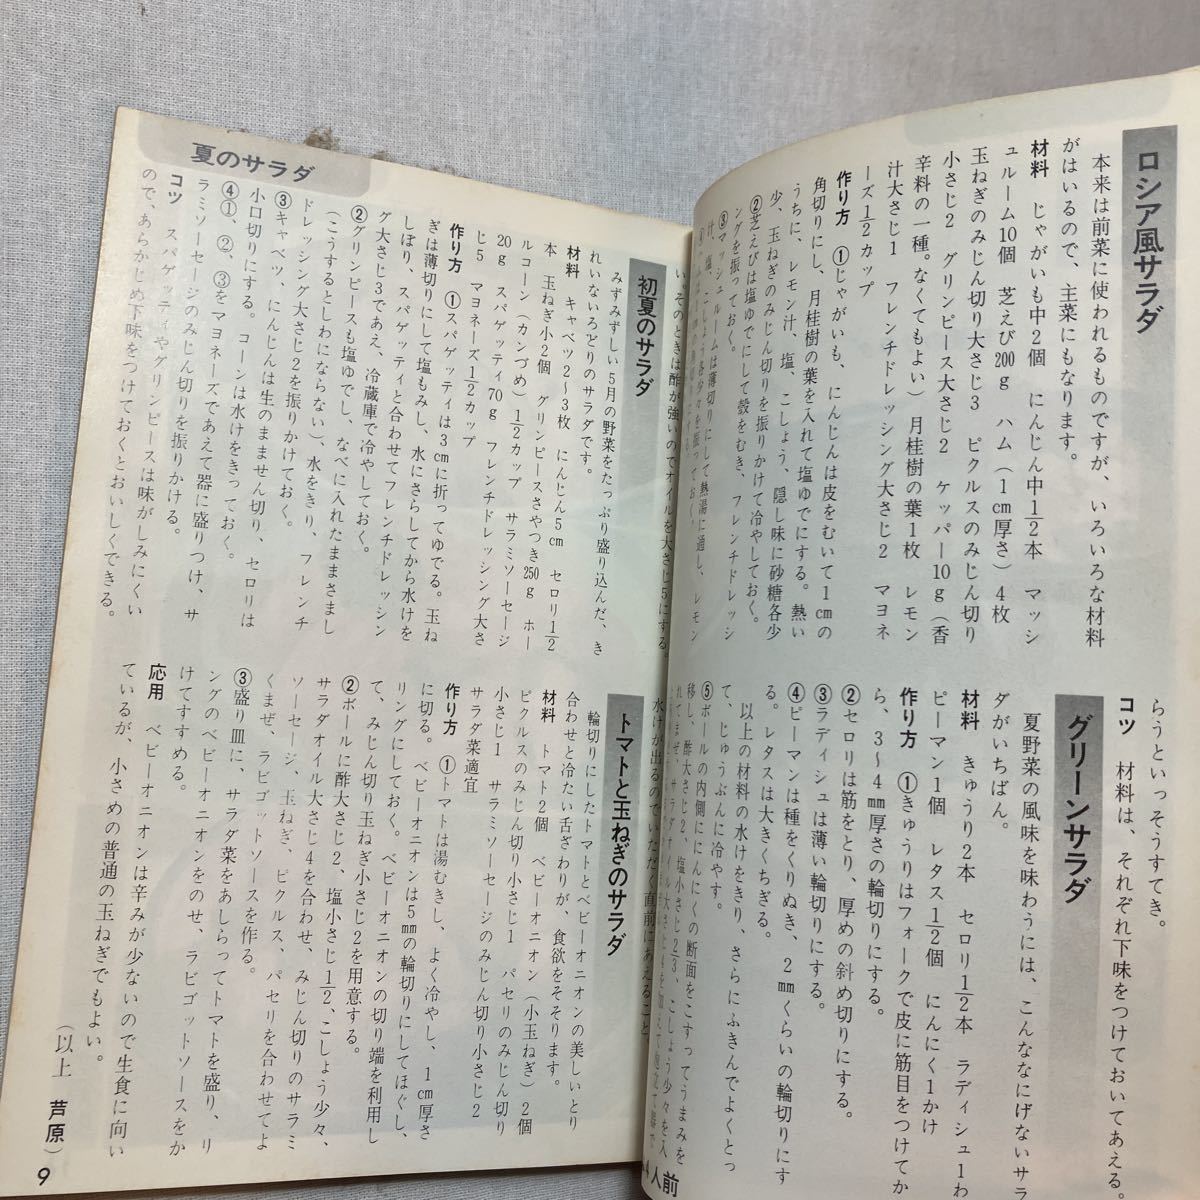 ロシア風サラダ
本来は前菜に使われるものですが、いろいろな材料
がはいるので、主菜にもなります。
材料　じゃがいも中2個　にんじん中1/2本　マッシ
ュルーム10個　芝えび200g　ハム（1cm厚さ）4枚
玉ねぎのみじん切り大さじ3　ピクルスのみじん切り
小さじ2　グリンピース大さじ2　ケッパー10g（香
辛料の一種。なくてもよい）月桂樹の葉1枚　レモン
汁大さじ1　フレンチドレッシング大さじ2　マヨネ
ーズ1/2カップ
作り方　①じゃがいも、にんじんは皮をむいて1cmの
角切りにし、月桂樹の葉を入れて塩ゆでにする。熱い
うちに、レモン汁、塩、こしょう、隠し味に砂糖各少
少、玉ねぎのみじん切りを振りかけて冷やしておく。
②芝えびは塩ゆでにして殻をむき、フレンチドレッシ
ングを振っておく。
③マッシュルームは薄切りにして熱湯に通し、レモン
汁、塩、こしょう各少々を振っておく。
らうといっそうすてき。
コツ　材料は、それぞれ下味をつけておいてあえる。
グリーンサラダ
夏野菜の風味を味わうには、こんなになにげないサラ
ダがいちばん。
材料　きゅうり2本　セロリ1/2本　ラディシュ1わ
ピーマン1個　レタス1/2個　にんにく1かけ
作り方　①きゅうりはフォークで皮に筋目をつけてか
ら、3〜4mm厚さの輪切りにする。
②セロリは筋をとり、厚めの斜め切りにする。
③ラディシュは薄い輪切りにする。
④ピーマンは種をくりぬき、2mmくらいの輪切りにす
る。レタスは大きくちぎる。
以上の材料の水けをきり、さらにふきんでよくとっ
て、じゅうぶんに冷やす。
⑤ボールの内側ににんにくの断面をこすってうまみを
移し、酢大さじ2、塩小さじ2/3、こしょう少々を入
4人前
夏のサラダ
い。そのときは酢が強いのでオイルを大さじ5にする。
初夏のサラダ
みずみずしい5月の野菜をたっぷり盛り込んだ、き
れいないろどりのサラダです。
材料　キャベツ2〜3枚　にんじん5cm　セロリ1/2
本　玉ねぎ小2個　グリンピースさやつき250g　ホー
ルコーン（カンづめ）1/2カップ　サラミソーセージ
20g　スパゲッティ70g　フレンチドレッシング大さ
じ5　マヨネーズ1/2カップ
作り方　①スパゲッティは3cmに折ってゆでる。玉ね
ぎは薄切りにして塩もみし、水にさらしてから水けを
しぼり、スパゲッティと合わせてフレンチドレッシン
グ大さじ3であえ、冷蔵庫で冷やしておく。
②グリンピースも塩ゆでし、なべに入れたままさまし
（こうするとしわにならない）、水をきり、フレンチ
ドレッシング大さじ2を振りかけておく。
③キャベツ、にんじんは生のまません切り、セロリは
小口切りにする。コーンは水けをきっておく。
④①、②、③をマヨネーズであえて器に盛りつけ、サ
ラミソーセージのみじん切りを振りかける。
コツ　スパゲッティやグリンピースは味がしみにくい
ので、あらかじめ下味をつけておくとおいしくできる。
水けが出るのでいただく直前にあえること
トマトと玉ねぎのサラダ
輪切りにしたトマトとベビーオニオンの美しいとり
合わせと冷たい舌ざわりが、食欲をそそります。
材料　トマト2個　ベビーオニオン（小玉ねぎ）2個
ピクルスのみじん切り小さじ1　パセリのみじん切り
小さじ1　サラミソーセージのみじん切り小さじ2
サラダ菜適宜
作り方　①トマトは湯むきし、よく冷やし、1cm厚さ
に切る。ベビーオニオンは5mmの輪切りにしてほぐし、
リングにしておく。ベビーオニオンの切り端を利用し
て、みじん切り玉ねぎ小さじ2を用意する。
②ボールに酢大さじ2、塩小さじ1/2、こしょう少々、
サラダオイル大さじ4を合わせ、みじん切りのサラミ
ソーセージ、玉ねぎ、ピクルス、パセリを合わせてよ
くまぜ、ラビゴットソースを作る。
③盛り皿に、サラダ菜をあしらってトマトを盛り、リ
ングのベビーオニオンをのせ、ラビゴットソースをか
けてすすめる。
応用　ベビーオニオンは辛みが少ないので生食に向い
ているが、小さめの普通の玉ねぎでもよい。
（以上　芦原）
9